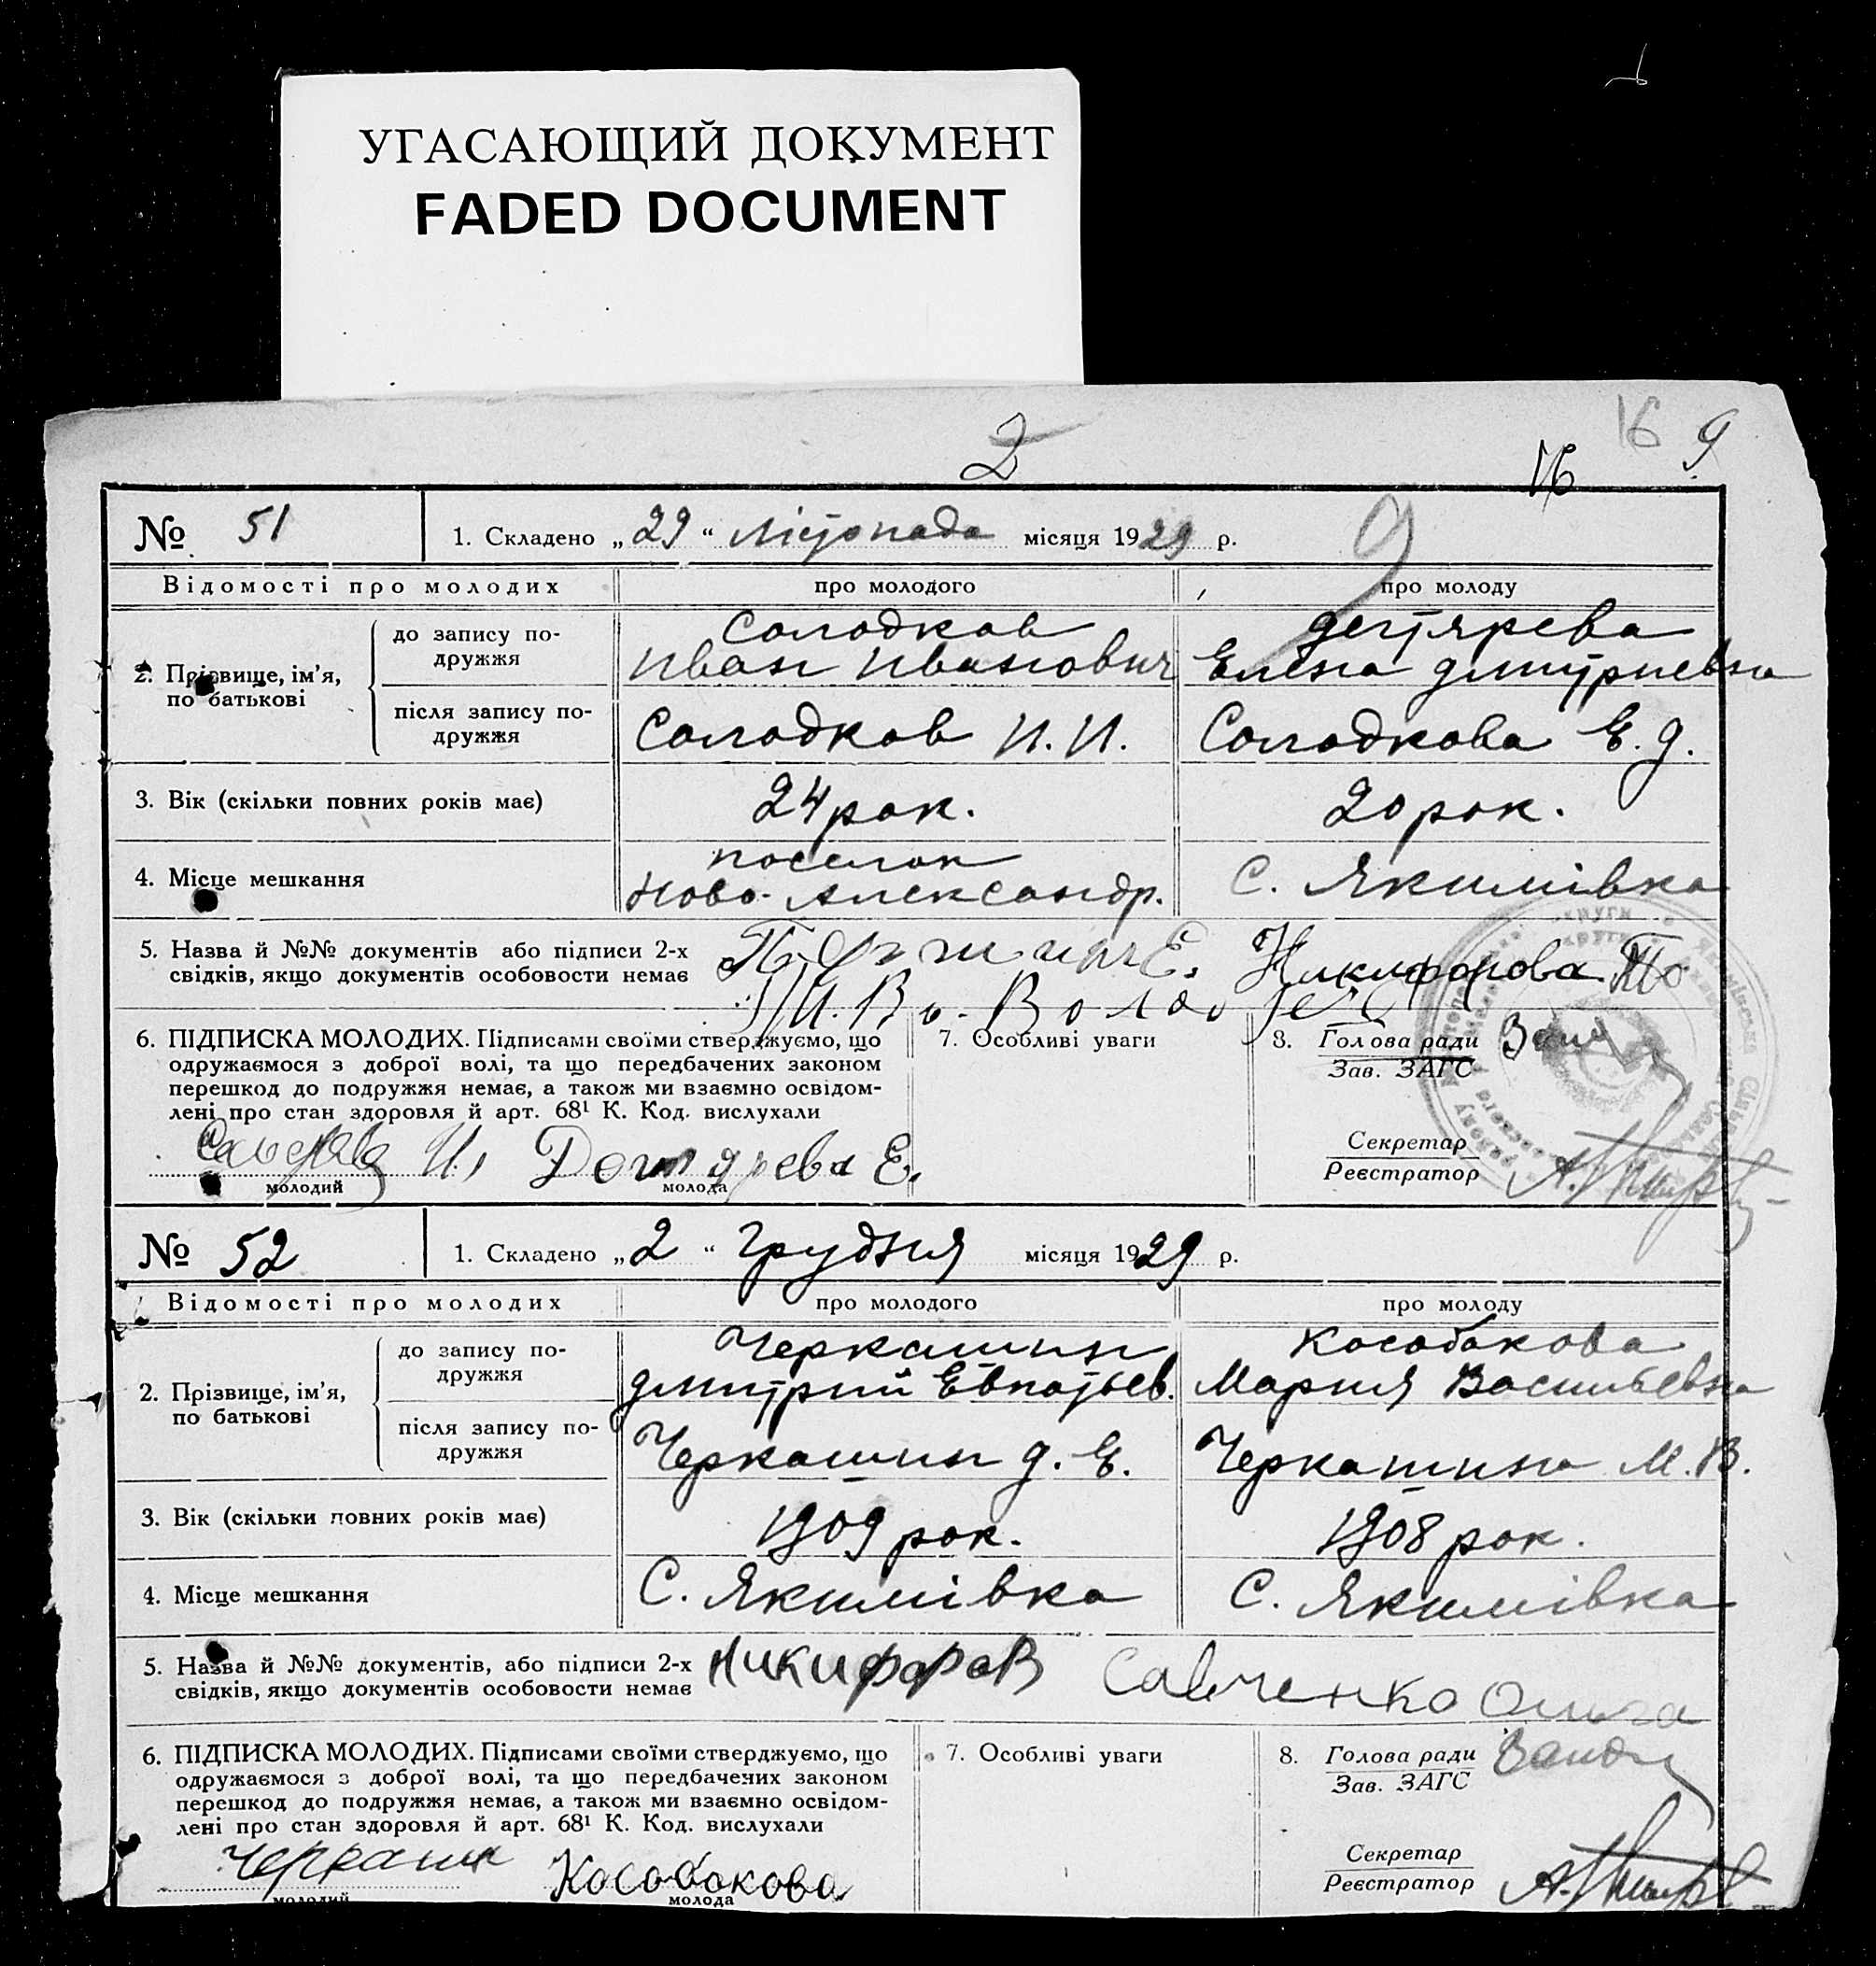 УГАСАЮЩИЙ ДОКУМЕНТ
FADED DOCUMENT
2
16 9
16
9
№ 51
1. Складено „29“ лістопада місяця 1929 р.
Відомості про молодих
про молодого
про молоду
2. Прізвище, ім’я, по батькові
до запису подружжя
Солодков
Иван Иванович
Дегтярева
Елена Дмитриевна
після запису подружжя
Солодков И. И.
Солодкова Е. Д.
3. Вік (скільки повних років має)
24 рок.
20 рок.
4. Місце мешкання
поселок
Ново-Александр.
С. Якимівка
5. Назва й №№ документів або підписи 2-х
свідків, якщо документів особовости немає
Никифорова
6. ПІДПИСКА МОЛОДИХ. Підписами своїми стверджуємо, що
одружаємося з доброї волі, та що передбачених законом
перешкод до подружжя немає, а також ми взаємно освідом-
лені про стан здоровля й арт. 68¹ К. Код. вислухали
И. Дегтярева Е.
молодий
молода
7. Особливі уваги
8. Голова ради
Зав. ЗАГС
Секретар
Реєстратор
№ 52
1. Складено „2“ грудня місяця 1929 р.
Відомості про молодих
про молодого
про молоду
2. Прізвище, ім’я,
по батькові
до запису по-
дружжя
Черкашин
Дмитрий Евпатьев.
Кособокова
Мария Васильевна
після запису по-
дружжя
Черкашин Д. Е.
Черкашина М. В.
3. Вік (скільки повних років має)
1909 рок.
1908 рок.
4. Місце мешкання
С. Якимівка
С. Якимівка
5. Назва й №№ документів, або підписи 2-х
свідків, якщо документів особовости немає
Никифоров Савченко Ольга
6. ПІДПИСКА МОЛОДИХ. Підписами своїми стверджуємо, що
одружаємося з доброї волі, та що передбачених законом
перешкод до подружжя немає, а також ми взаємно освідом-
лені про стан здоровля й арт. 68¹ К. Код. вислухали
Черкашин Кособокова
молодий
молода
7. Особливі уваги
8. Голова ради
Зав. ЗАГС
Секретар
Реєстратор